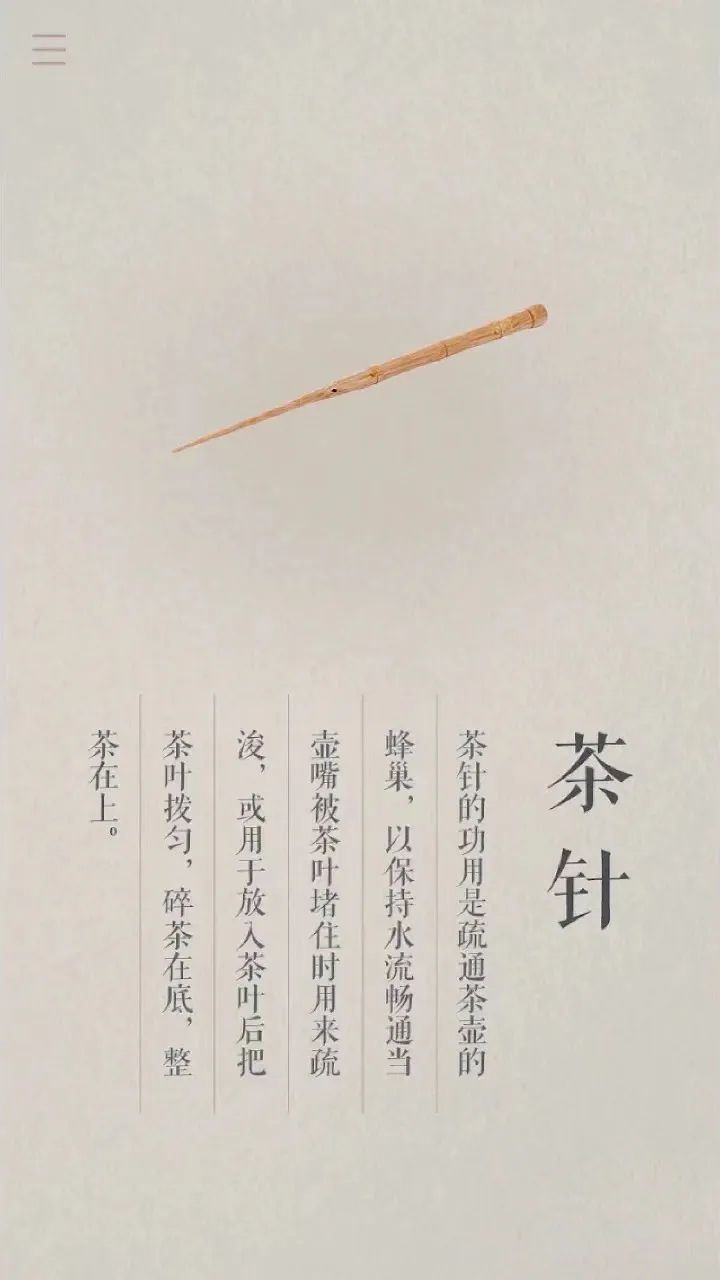 茶针
茶针的功用是疏通茶壶的
蜂巢，以保持水流畅通当
壶嘴被茶叶堵住时用来疏
浚，或用于放入茶叶后把
茶叶拨匀，碎茶在底，整
茶在上。